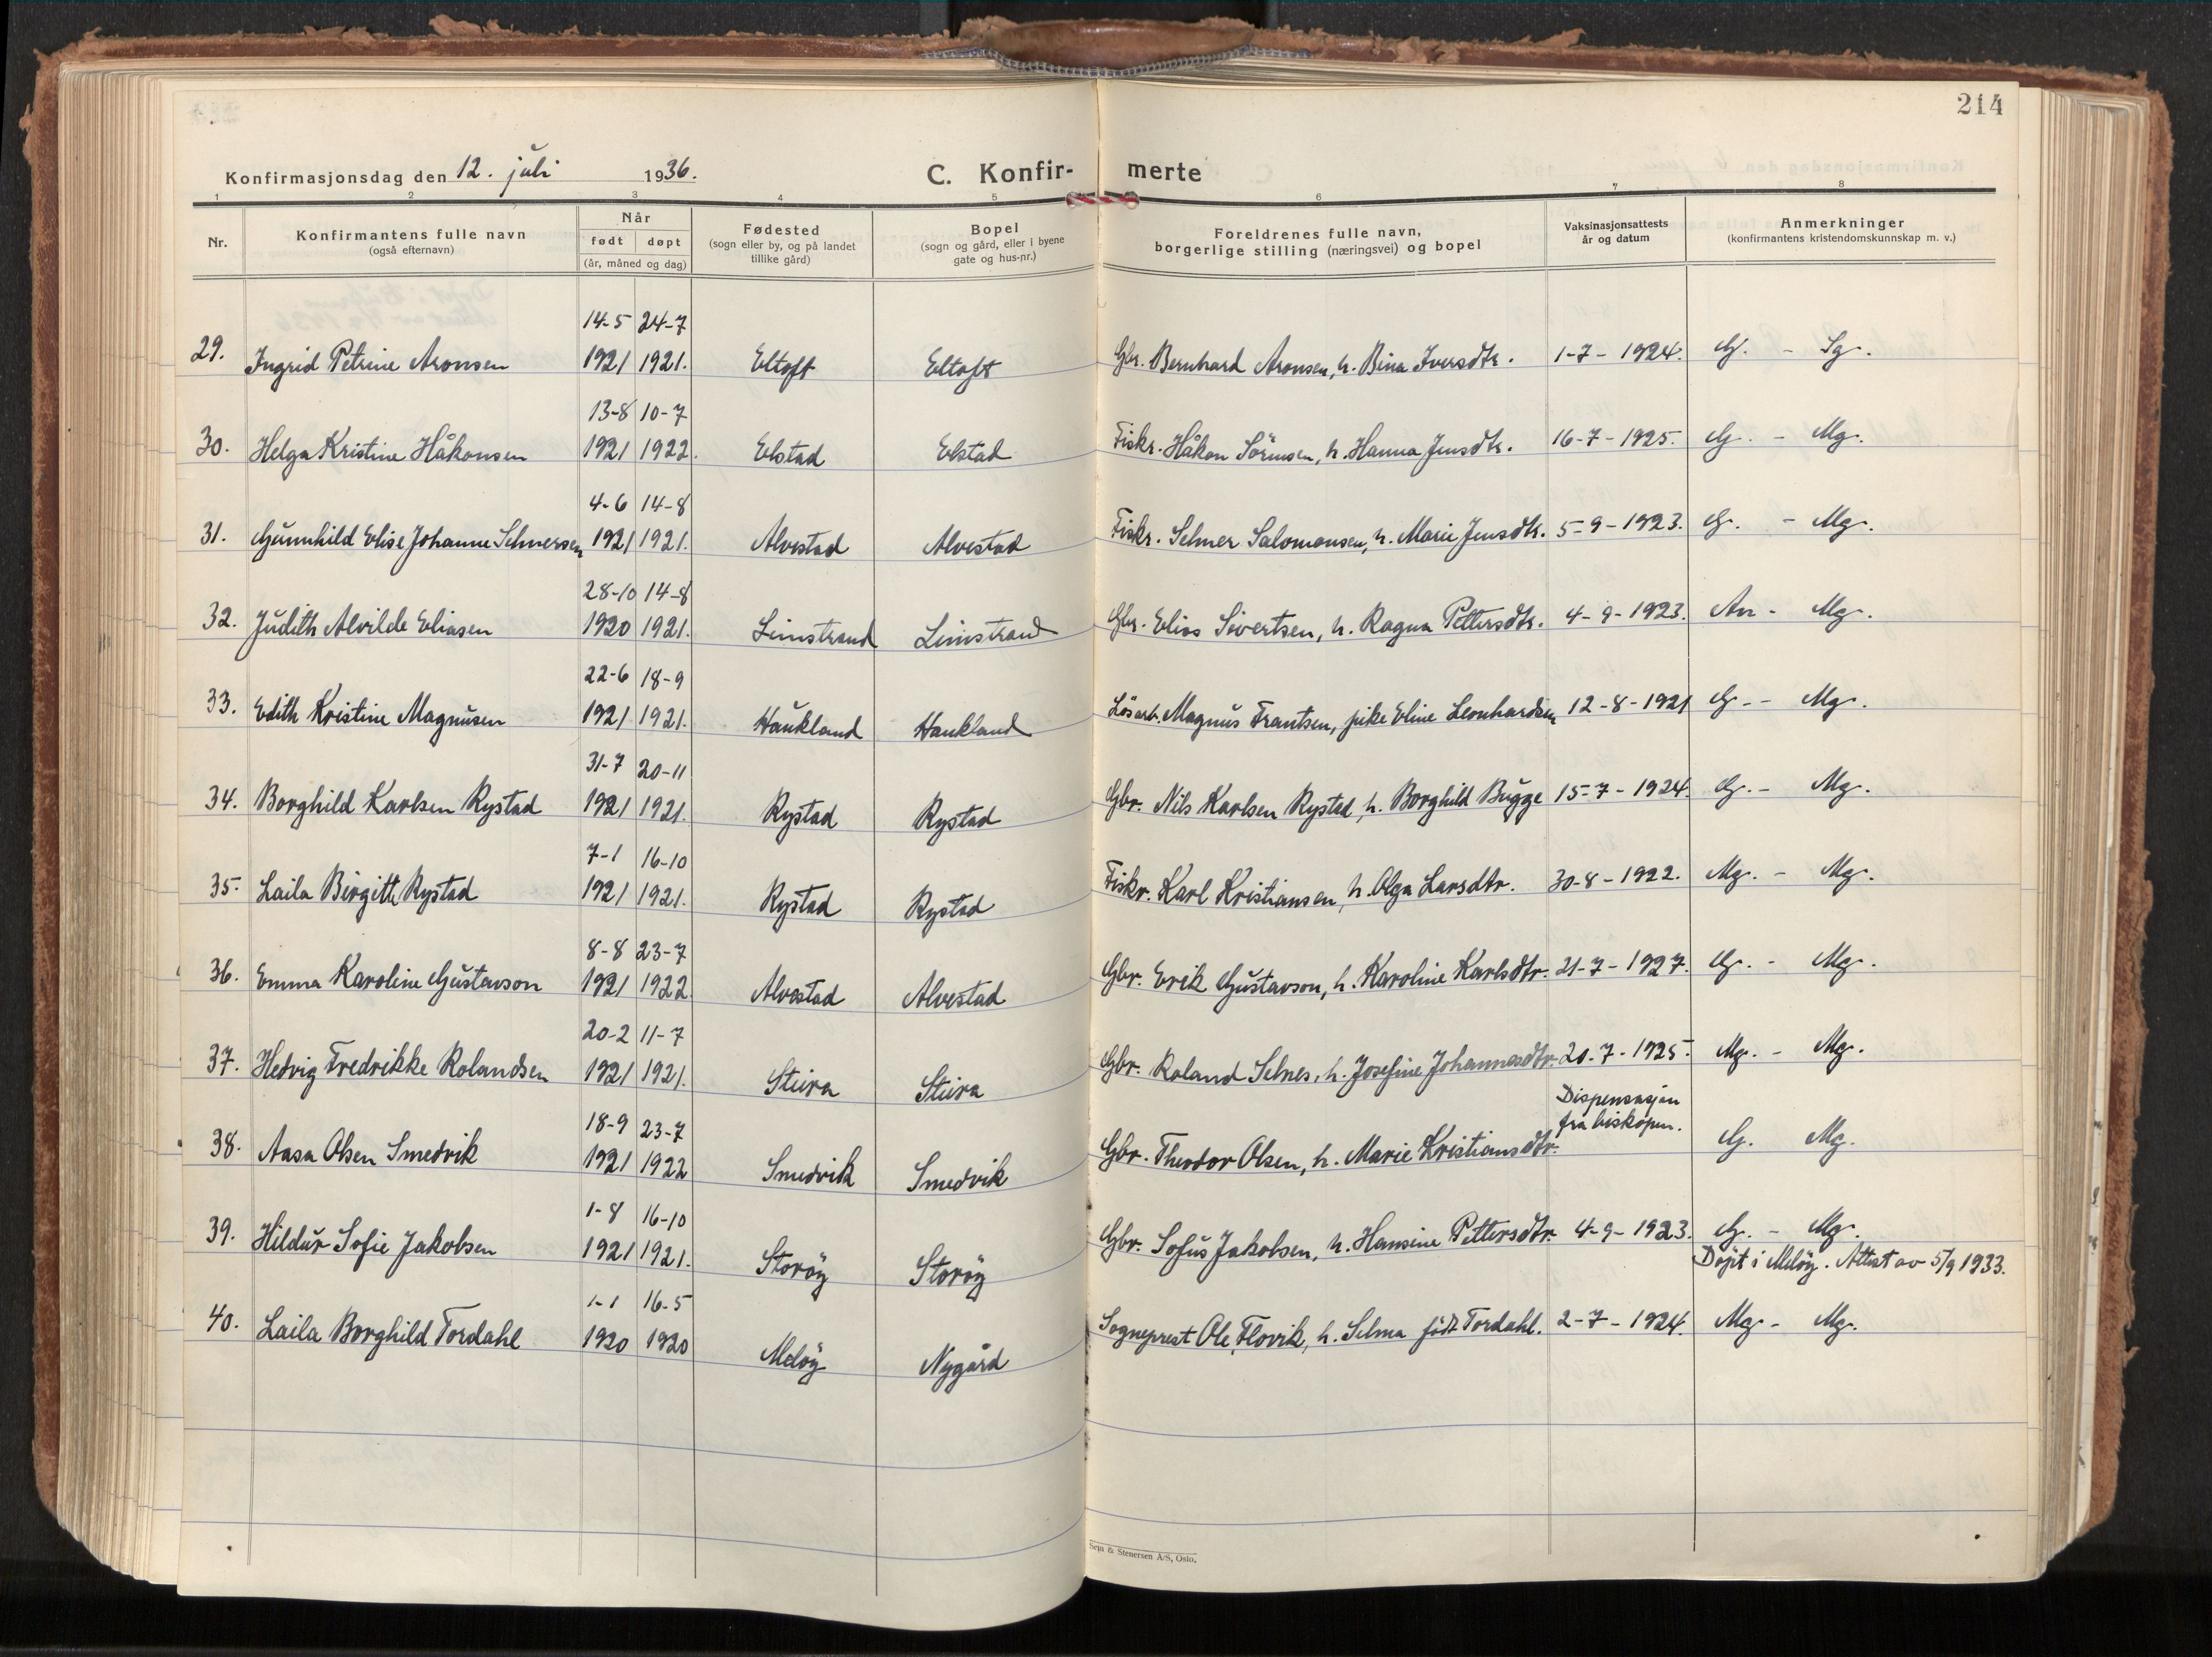 214
Konfirmasjonsdag den 12. juli 1936.
C. Konfir- merte
1 2 3 4 5 6 7 8
Nr.
Konfirmantens fulle navn
(også efternavn)
Når
født døpt
(år, måned og dag)
Fødested
(sogn eller by, og på landet
tillike gård)
Bopel
(sogn og gård, eller i byene
gate og hus-nr.)
Foreldrenes fulle navn,
borgerlige stilling (næringsvei) og bopel
Vaksinasjonsattests
år og datum
Anmerkninger
(konfirmantens kristendomskunnskap m. v.)
14-5 24-7
29. Ingrid Petrine Aronsen 1921 1921. Eltoft Eltoft Gbr. Bernhard Aronsen, h. Bina Iversdtr. 1-7-1924. G. - Sg.
13-8 10-7
30. Helga Kristine Håkonsen 1921 1922. Elstad Elstad Fiskr. Håkon Sörensen, h. Hanna Jensdtr. 16-7-1925. G. - Mg.
4-6 14-8
31. Gunnhild Elise Johanne Selmersen 1921 1921. Alvestad Alvestad Fiskr. Selmer Salomonsen, h. Marie Jensdtr. 5-9-1923. G. - Mg.
28-10 14-8
32. Judith Alvilde Eliasen 1920 1921. Limstrand Limstrand Gbr. Elias Sivertsen, h. Ragna Pettersdtr. 4-9-1923. An - Mg.
22-6 18-9
33. Edith Kristine Magnusen 1921 1921. Haukland Haukland Lösarb. Magnus Frantsen, pike Eline Leonhardsen 12-8-1921 G. - Mg.
31-7 20-11
34. Borghild Karlsen Rystad 1921 1921. Rystad Rystad Gbr. Nils Karlsen Rystad, h. Borghild Bugge 15-7-1924. G. - Mg.
7-1 16-10
35. Laila Birgitte Rystad 1921 1921. Rystad Rystad Fiskr. Karl Kristiansen, h. Olga Larsdtr. 30-8-1922. Mg. - Mg.
8-8 23-7
36. Emma Karoline Gustavson 1921 1922 Alvestad Alvestad Gbr. Erik Gustavson, h. Karoline Karlsdtr. 21-7-1927. G. - Mg.
20-2 11-7
37. Hedvig Fredrikke Rolandsen 1921 1921. Steira Steira Gbr. Roland Selnes, h. Josefine Johannesdtr. 20-7-1925. Mg. - Mg.
18-9 23-7 Dispensasjon
fra biskopen.
38. Aasa Olsen Smedvik 1921 1922 Smedvik Smedvik Gbr. Theodor Olsen, h. Marie Kristiansdtr. G. Mg.
1-8 16-10
39. Hildur Sofie Jakobsen 1921 1921. Storöy Storöy Gbr. Sofus Jakobsen, h. Hansine Pettersdtr. 4-9-1923. G. - Mg.
Döpt i Melöy. Attest av 5/9 1933.
1-1 16-5
40. Laila Borghild Tordahl 1920 1920 Melöy Nygård Sogneprest Ole Flovik, h. Selma födt Tordahl. 2-7-1924. Mg - Mg.
Sem & Stenersen A/S, Oslo.